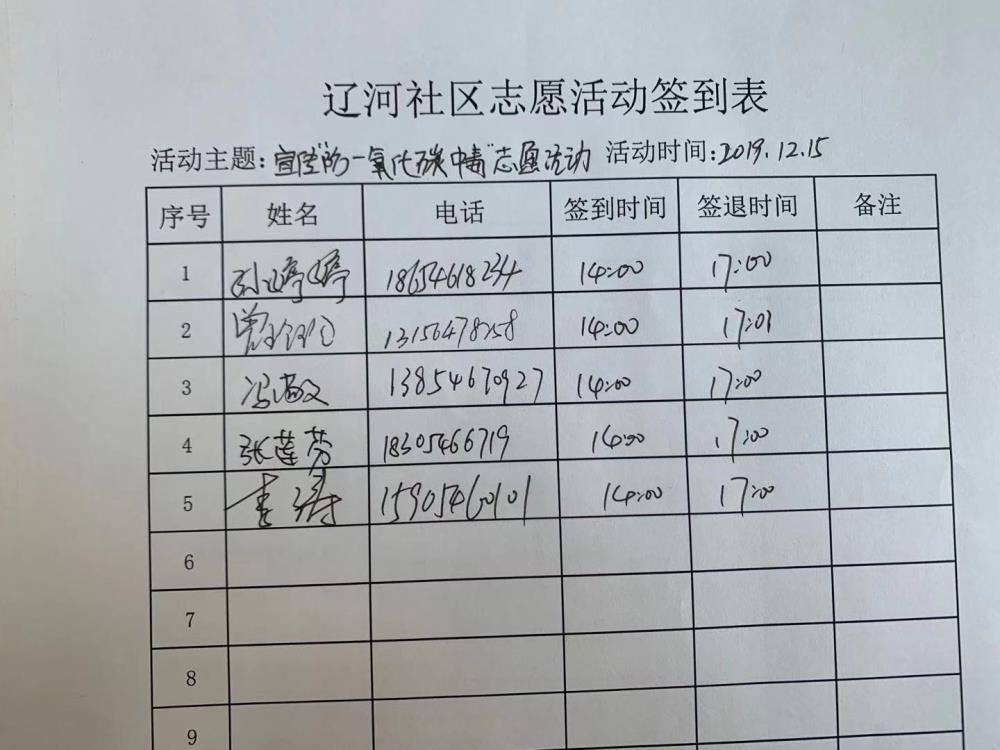 辽河社区志愿活动签到表
活动主题：宣传"防一氧化碳中毒"志愿活动 活动时间：2019.12.15
序号 姓名 电话 签到时间 签退时间 备注
1 孙婷婷 18654618234 14:00 17:00
2 13156478258 14:00 17:01
3 冯海文 13854670927 14:00 17:00
4 张莲芳 18305466719 14:00 17:00
5 李涛 15905460101 14:00 17:00
6
7
8
9